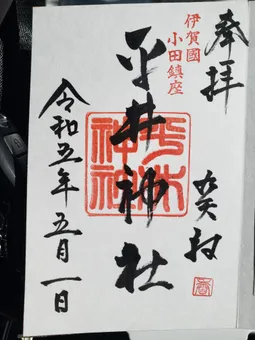 奉拝
癸卯
伊賀國
小田鎮座
平井神社
令和五年五月一日